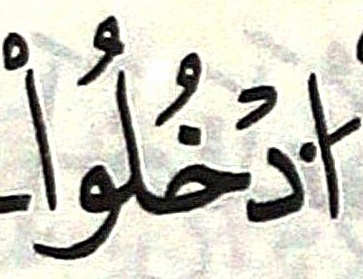 ادْخُلُواْ